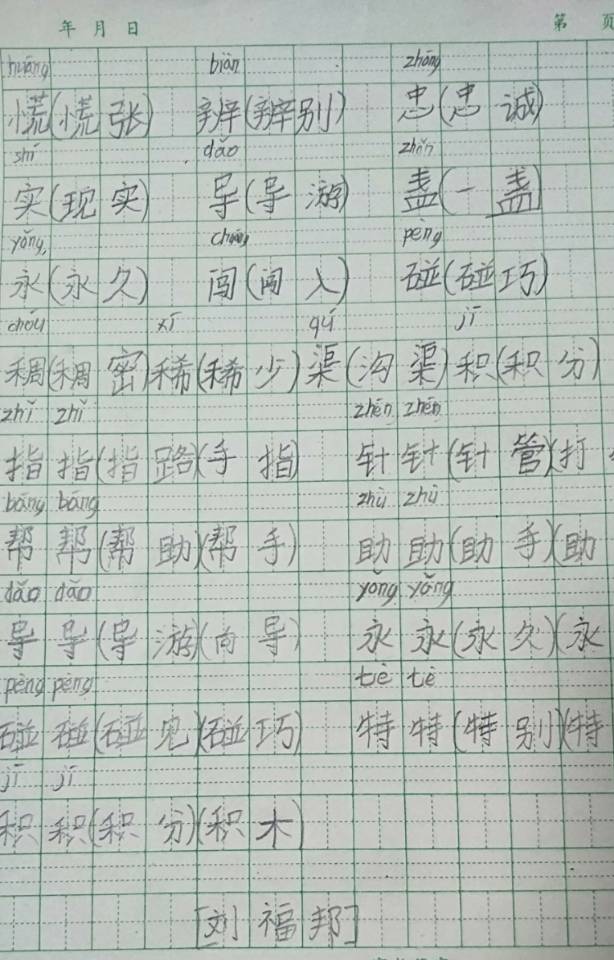 年 月 日 第 页
huāng biàn zhōng
慌(慌张) 辨(辨别) 忠(忠诚)
shí dǎo zhǎn
实(现实) 导(导游) 盏(一盏)
yǒng chuǎng pèng
永(永久) 闯(闯入) 碰(碰巧)
chóu xī qú jī
稠(稠密) 稀(稀少) 渠(沟渠) 积(积分)
zhǐ zhǐ zhēn zhēn
指 指(指路)(手指) 针 针(针管)(打
bāng bāng zhù zhù
帮 帮(帮助)(帮手) 助 助(助手)(助
dǎo dǎo yǒng yǒng
导 导(导游)(向导) 永 永(永久)(永
pèng pèng tè tè
碰 碰(碰见)(碰巧) 特 特(特别)(特
jī jī
积 积(积分)(积木)
[刘福邦]